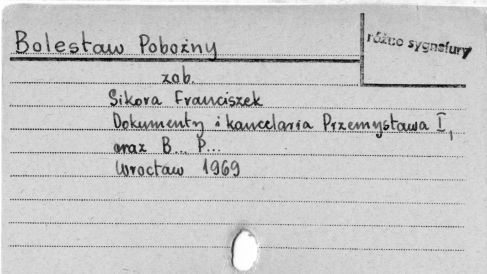 Bolesław Pobożny
różne sygnatury
zob.
Sikora Franciszek
Dokumenty i kancelaria Przemysława I,
oraz B... P...
Wrocław 1969